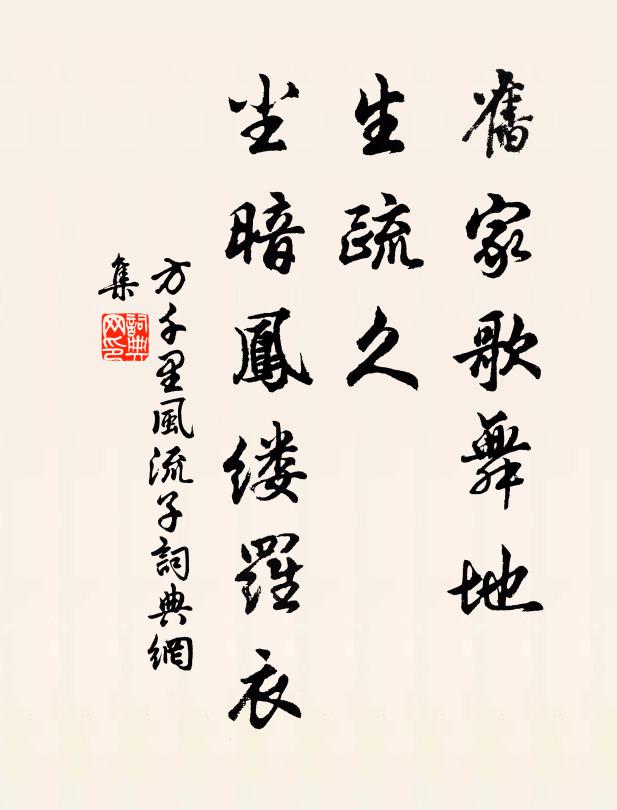 舊家歌舞地
生疏久
尘暗鳳缕羅衣
方千里風流子詞典網
集
詞典網印